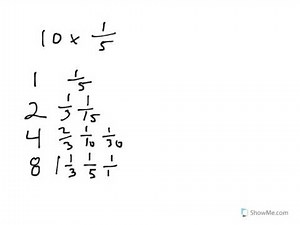 10 × 1/5
1 1/5
2 1/3 1/15
4 2/3 1/10 1/30
8 1 1/3 1/5 1/1
ShowMe.com